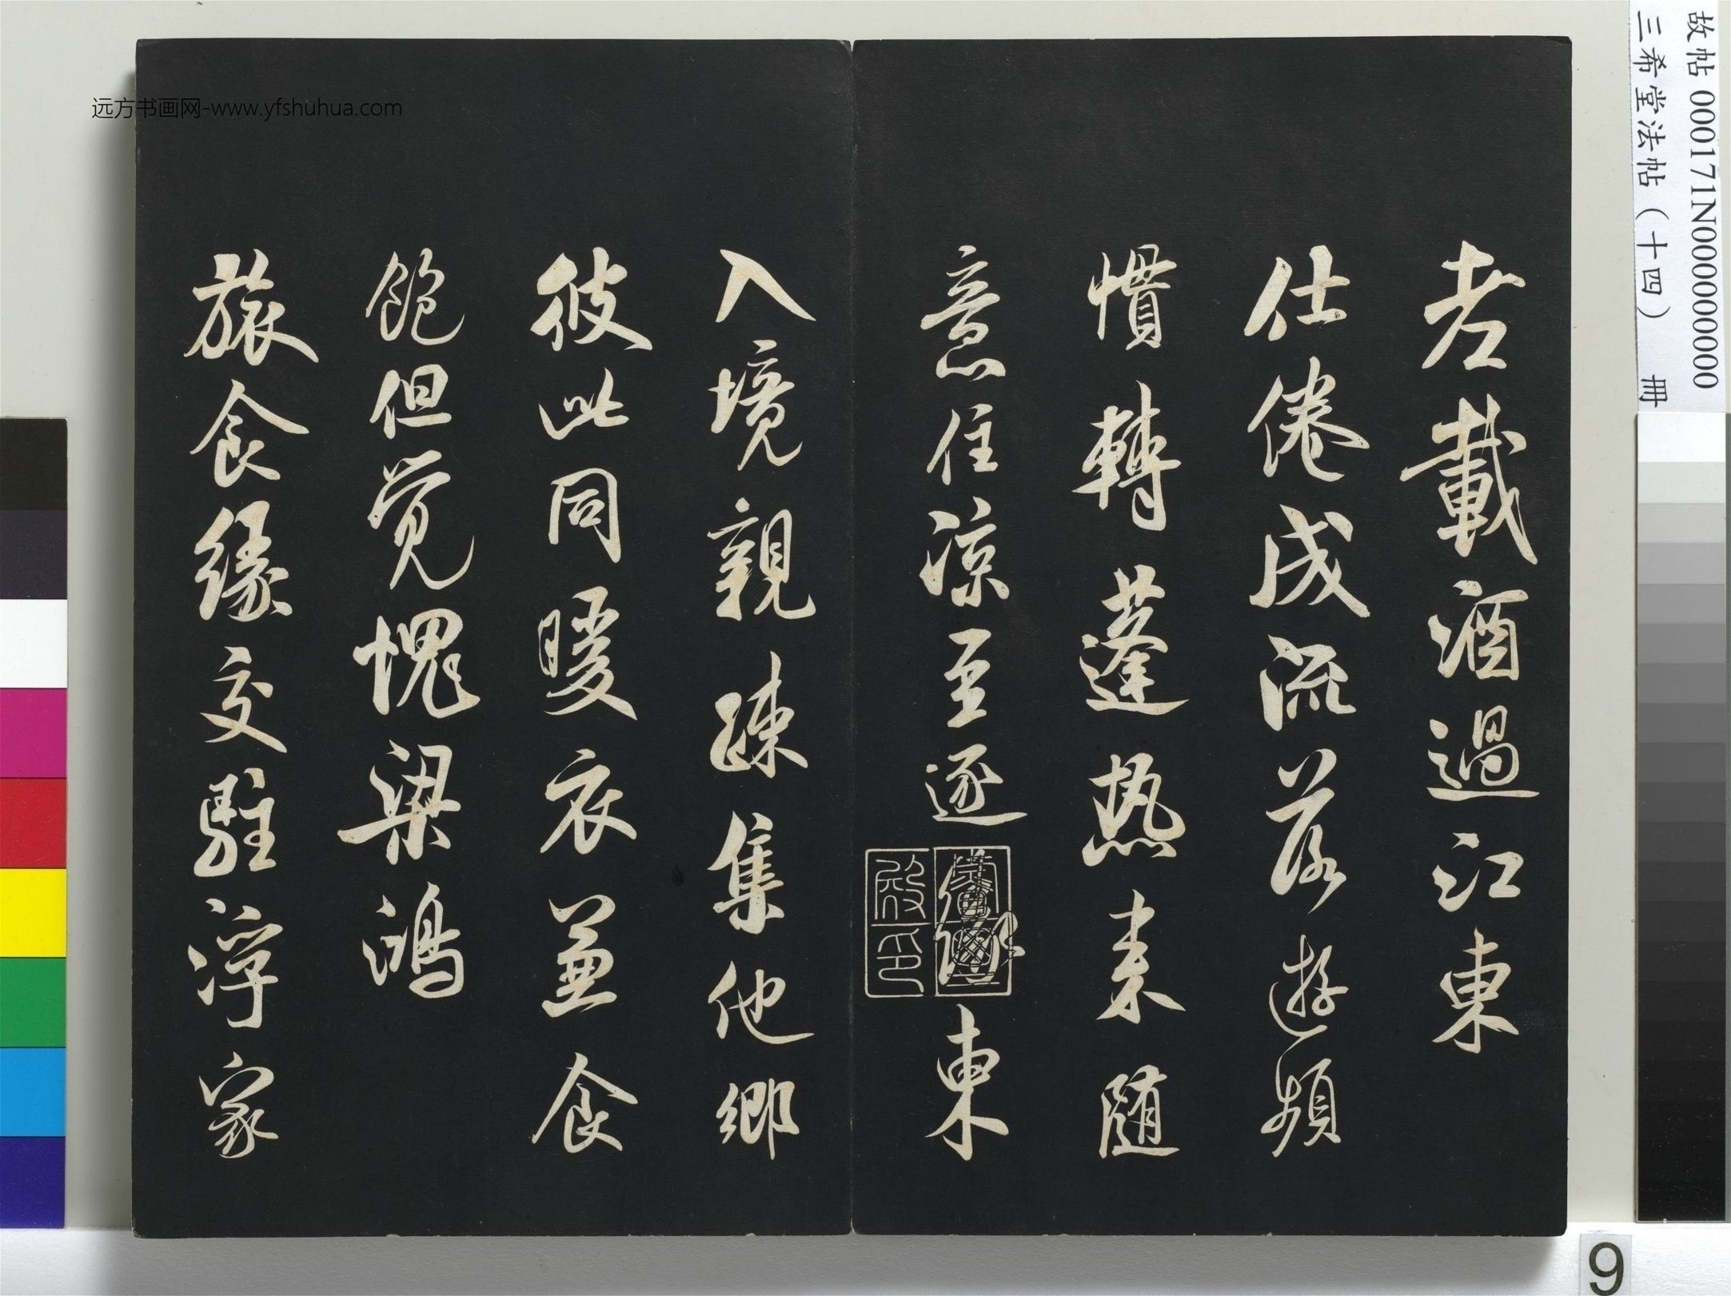 老載酒過江東
仕倦成流落遊頻
慣轉蓬热来随
意住凉至逐東
入境親疎集他鄉
彼此同暖衣兼食
飽但覚愧梁鴻
旅食緣交駐浮家
远方书画网-www.yfshuhua.com
故帖 000171N000000000
三希堂法帖（十四） 冊
9